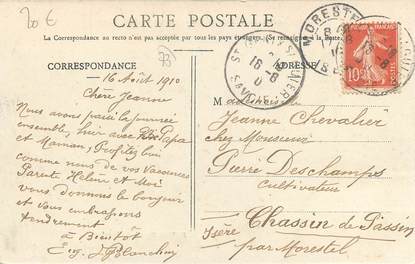 20 €
CARTE POSTALE
La Correspondance au recto n'est pas acceptée par tous les pays étrangers. (Se renseigner à la Poste).
CORRESPONDANCE
ADRESSE
73
16 Août 1910
Chère Jeanne
Nous avons passé la journée
ensemble, hier avec Papa
et Maman; Profitez bien
comme nous de vos Vacances
Parent Hélène et Moi
vous donnons le bonjour
et vous embrassons
tendrement
à Bientôt
Eug.
Mademoiselle
Jeanne Chevalier
chez Monsieur
Pierre Deschamps
Cultivateur
Chassin de Passin
Isère
par Morestel
MORESTEL
18-8
SAVOIE
10